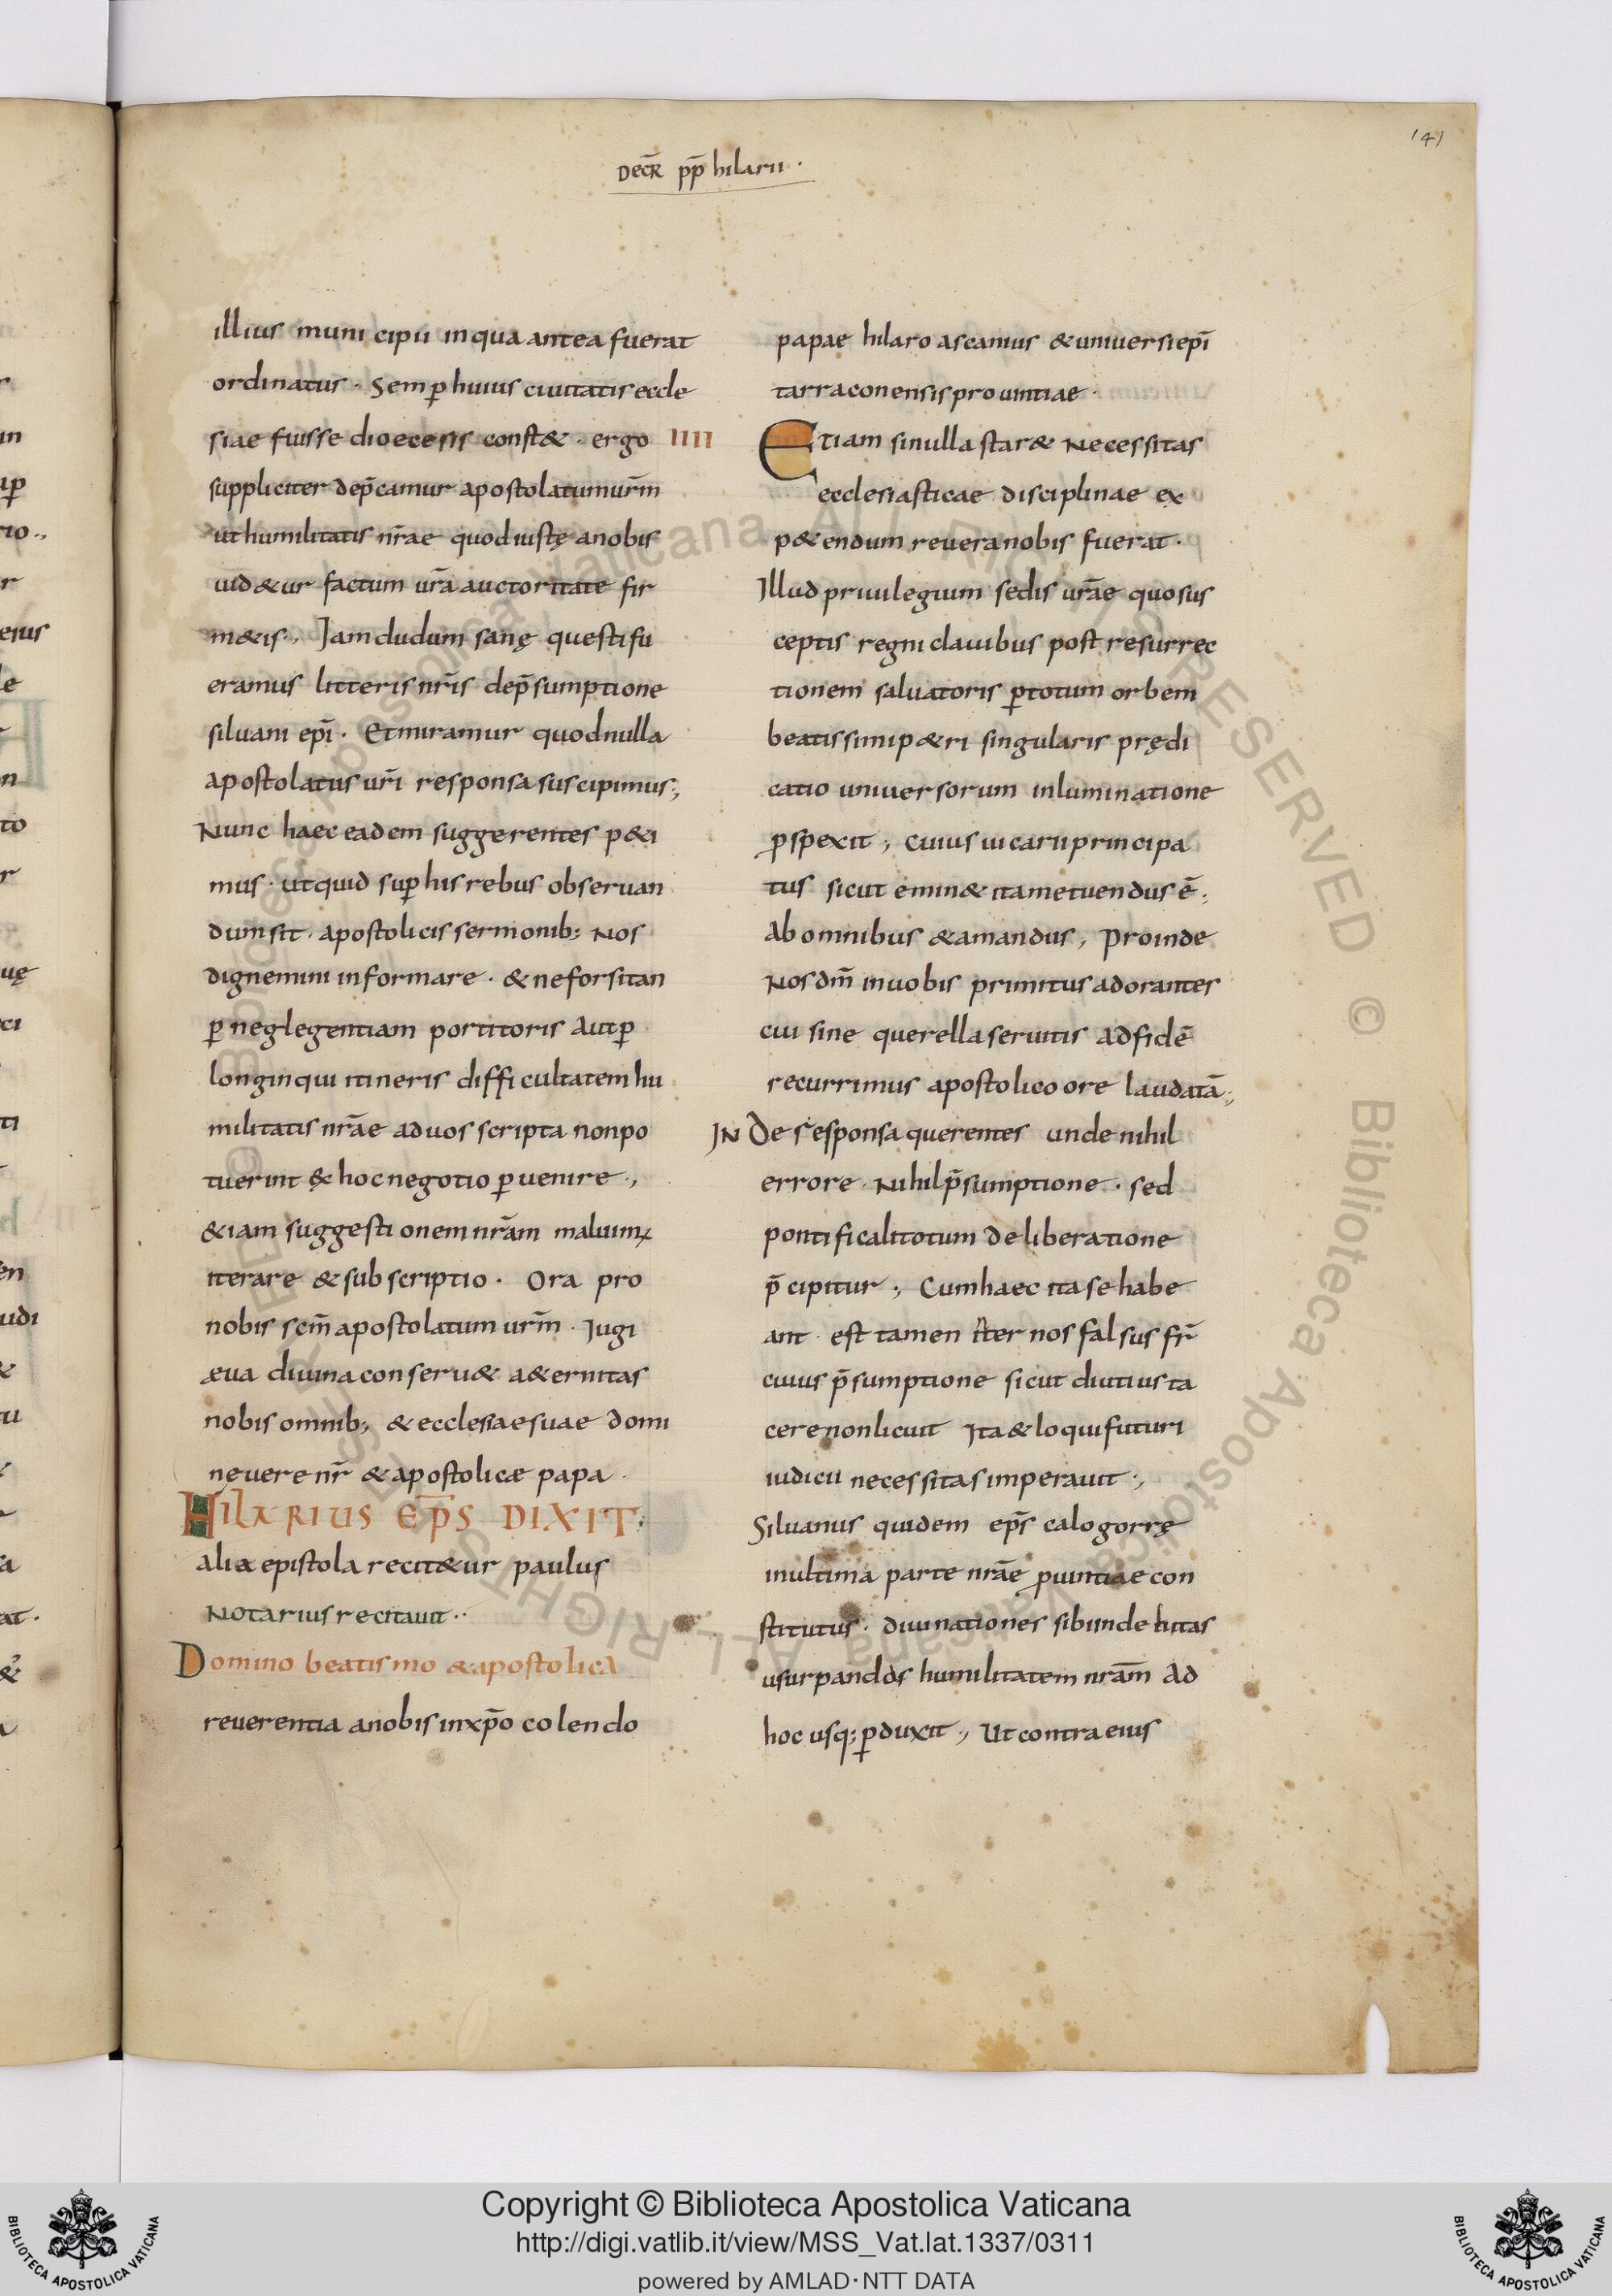 141
DECR̄ pp̄ hilarii ·
illius municipii in qua antea fuerat
ordinatus · Semp̲ huius ciuitatis eccle
siae fuisse dioecesis const& · ergo
suppliciter dep̄camur apostolatum ur̄m
ut humilitatis nr̄ae quod iustę a nobis
uid&ur factum ur̄a auctoritate fir
m&is ; Iam dudum sanę questi fu
eramus litteris nr̄is de p̄sumptione
siluani ep̄i · Et miramur quod nulla
apostolatus ur̄i responsa suscipimus ;
Nunc haec eadem suggerentes p&i
mus · ut quid sup̲ his rebus obseruan
dum sit · apostolicis sermonib; Nos
dignemini informare · & ne forsitan
p̲ neglegentiam portitoris aut p̲
longinqui itineris difficultatem hu
militatis nr̄ae ad uos scripta non po
tuerint & hoc negotio p̲uenire ;
&iam suggestionem nr̄am maluim;
iterare & subscriptio · Ora pro
nobis sc̄m apostolatum ur̄m · Iugi
æua diuina conseru& a&ernitas
nobis omnib; & ecclesiae suae domi
ne uere nr̄ & apostolicæ papa
HILARIUS EP̄S DIXIT
alia epistola recit&ur paulus
Notarius recitauit ··
Domino beatismo & apostolica
reuerentia a nobis in xp̄o colendo
papae hilaro ascanius & uniuersi ep̄i
tarraconensis prouintiae ·
IIII Etiam si nulla star& Necessitas
ecclesiasticae disciplinae ex
p&endum reuera nobis fuerat ·
Illud priuilegium sedis ur̄ae quo sus
ceptis regni clauibus post resurrec
tionem saluatoris p̲ totum orbem
beatissimi p&ri singularis prędi
catio uniuersorum inluminatione
p̲spexit ; cuius uicarii principa
tus sicut emin& ita metuendus ē ;
Ab omnibus & amandus ; Proinde
Nos dm̄ in uobis primitus adorantes
cui sine querella seruitis ad fidē
recurrimus apostolico ore laudatā ;
INDe responsa querentes unde nihil
errore · Nihil p̄sumptione · sed
pontificali totum deliberatione
p̄cipitur ; Cum haec ita se habe
ant · est tamen iter nos falsus fr̄
cuius p̄sumptione sicut diutius ta
cere non licuit Ita & loqui futuri
iudicii necessitas imperauit ;
Siluanus quidem ep̄s calogorrę
in ultima parte nr̄ae p̲uintiae con
stitutus · diuinationes sibi indebitas
usurpandas humilitatem nram̄ Ad
hoc usq; p̲duxit ; Ut contra eius
Copyright © Biblioteca Apostolica Vaticana
http://digi.vatlib.it/view/MSS_Vat.lat.1337/0311
powered by AMLAD·NTT DATA
BIBLIOTECA APOSTOLICA VATICANA
BIBLIOTECA APOSTOLICA VATICANA